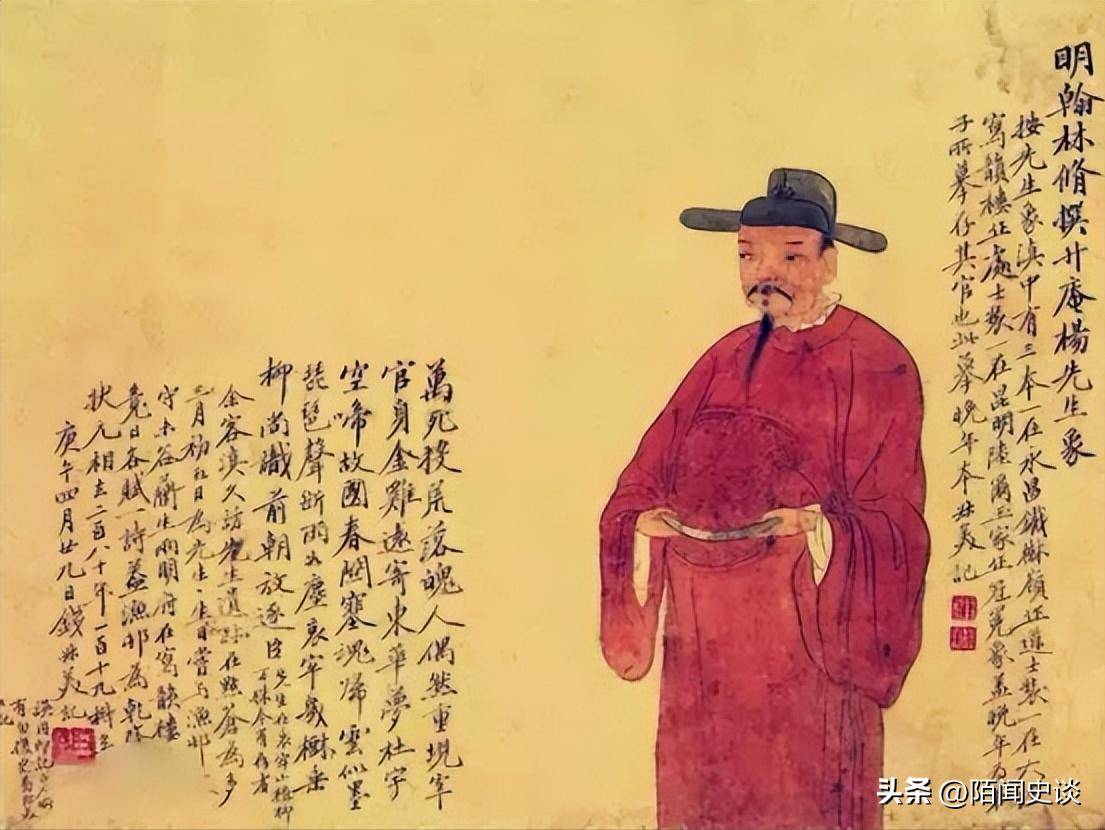 明翰林脩撰升庵楊先生象
按先生象滇中有三本一在永昌鐵樹嶺近道士裝一在大
寫韻樓近處士裝一在昆明陸爾玉家作冠冕象蓋晚年
子所摹仔其官也此摹晚年本
記
萬死投荒落魄人偶然重現宰
官身金雞遠寄東華夢杜宇
空啼故國春關塞魂歸雲似墨
琵琶聲斷雨如塵哀牢幾樹垂
柳尚識前朝放逐臣先生在哀牢山植柳
余客滇久訪先生遺跡在點蒼為多
三月初五日為先生生日嘗與漁邨
守未谷
明府在寫韻樓
竟日各賦一詩蓋漁邨為乾隆
狀元相去二百八十年一百十九科矣
庚午四月廿九日錢
記
头条 @陌闻史谈